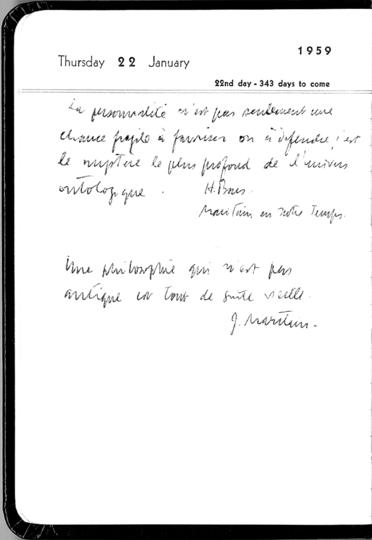 1959
Thursday 22 January
22nd day - 343 days to come
La personnalité n'est pas seulement une
chance fragile à favoriser ou à défendre, c'est
le mystère le plus profond de l'univers
ontologique. H. Bars.
Maritain en notre temps.
Une philosophie qui n'est pas
antique est tout de suite vieille.
J. Maritain.